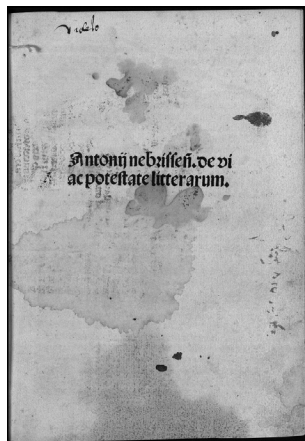 Antonij nebrisseñ. de vi
ac potestate litterarum.